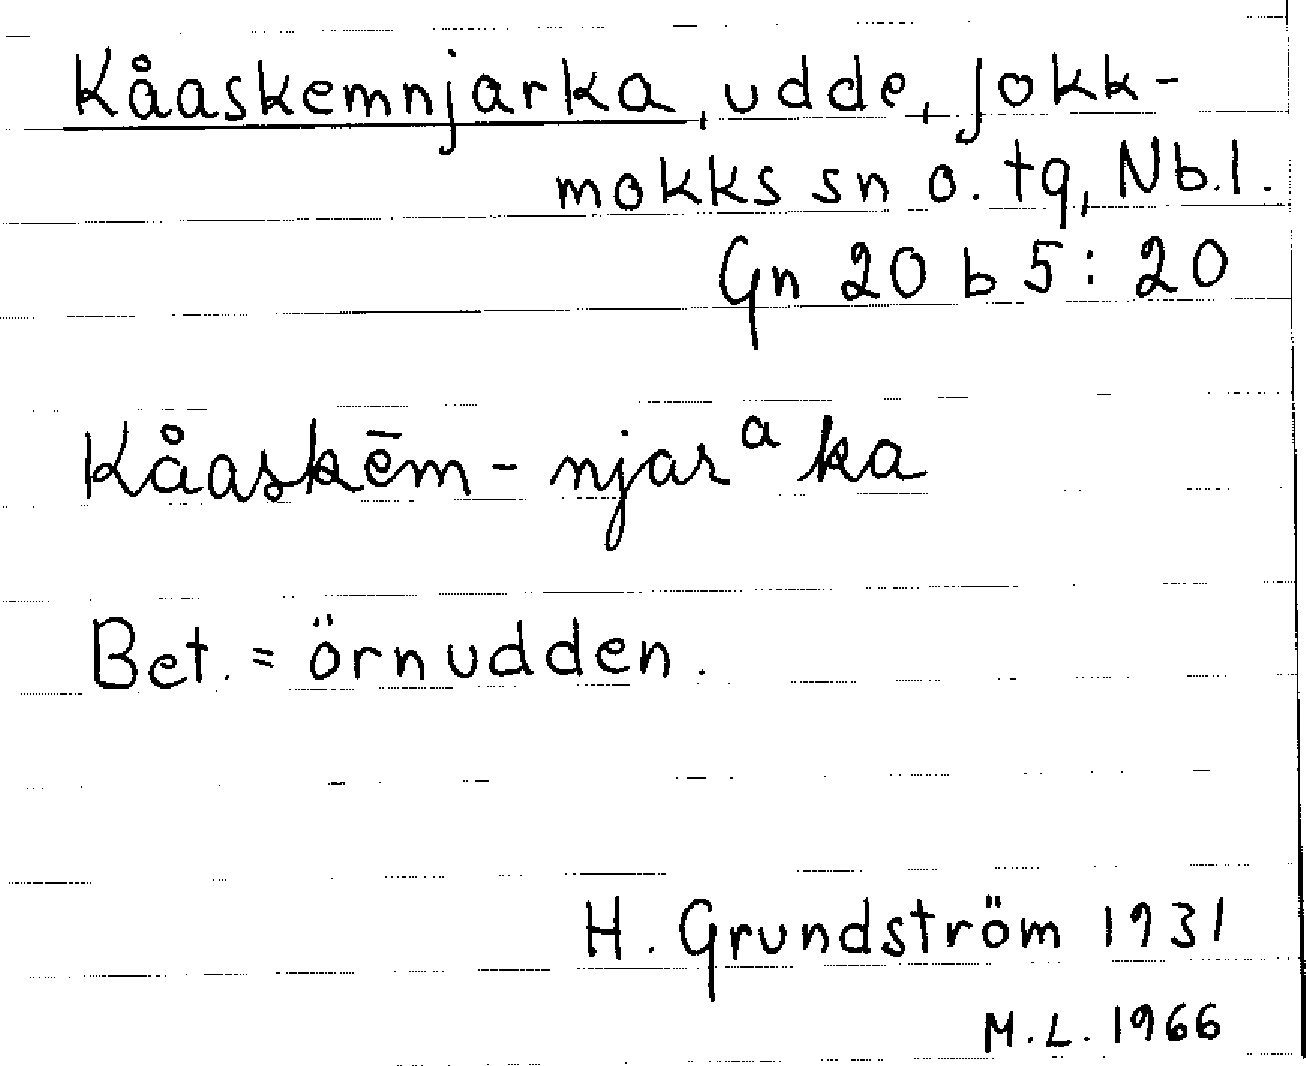 Kåaskemnjarka, udde, Jokk-
mokks sn o. tg, Nb.l.
Gn 20 b 5:20
Kåaskēm-njarᵃka
Bet. = örnudden.
H. Grundström 1931
M.L. 1966